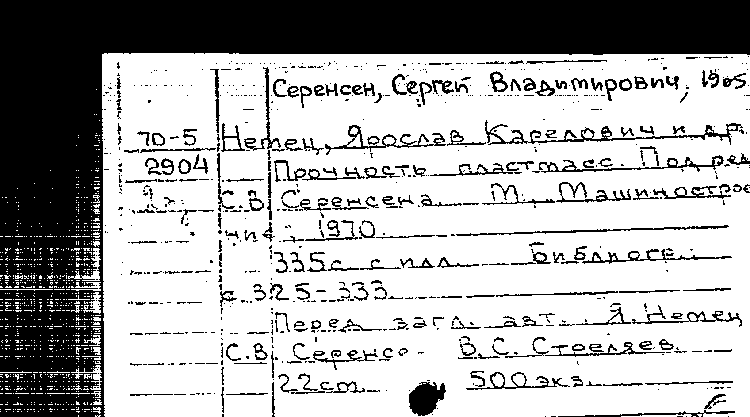 Серенсен, Сергей Владимирович, 1905
70-5 Немец, Ярослав Карелович и др.
2904 Прочность пластмасс. Под ред.
С.В. Серенсена. М., Машинострое
ние, 1970.
335с. с илл. Библиогр.:
с. 325-333.
Перед загл. авт.: Я. Немец
С.В. Серенсе- В.С. Стреляев.
22см. 500экз.